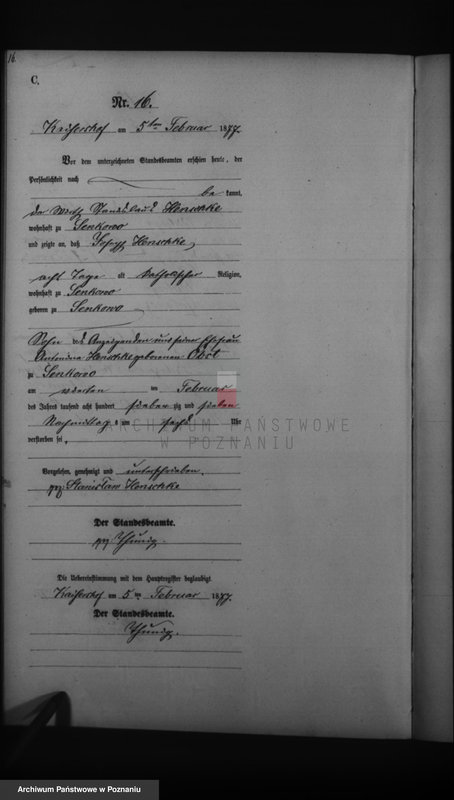 16.
C.
Nr. 16.
Kaisershof am 5ten Februar 1877.
Vor dem unterzeichneten Standesbeamten erschien heute, der
Persönlichkeit nach
be kannt,
der Wirth Stanislaus Henschke
wohnhaft zu Senkowo
und zeigte an, daß Joseph Henschke,
acht Tage alt katholischer Religion,
wohnhaft zu Senkowo
geboren zu Senkowo
Sohn des Anzeigenden und seiner Ehefrau
Antonina Henschke geborenen Obst
zu Senkowo
am vierten im Februar
des Jahres tausend acht hundert sieben zig und sieben
Nachmittag s um sechs Uhr
verstorben sei.
ARCHIWUM PAŃSTWOWE
W POZNANIU
Vorgelesen, genehmigt und unterschrieben.
gez. Stanislaw Henschke
Der Standesbeamte.
gez.
Die Uebereinstimmung mit dem Hauptregister beglaubigt
Kaisershof am 5ten Februar 1877.
Der Standesbeamte.
Archiwum Państwowe w Poznaniu